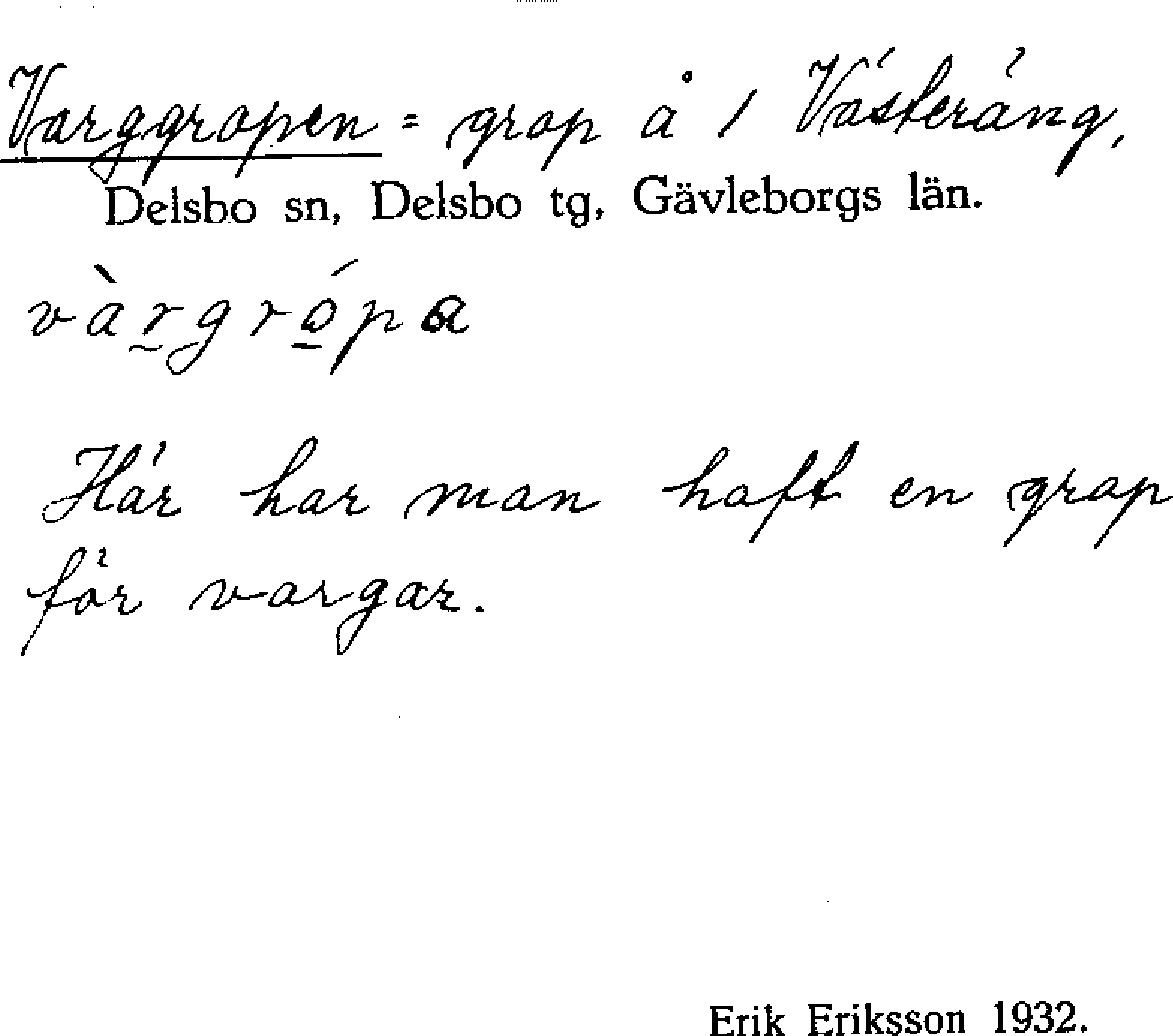 Varggropen = grop å 1 Västeräng,
Delsbo sn, Delsbo tg, Gävleborgs län.
vàrgrópa
Här har man haft en grop
för vargar.
Erik Eriksson 1932.